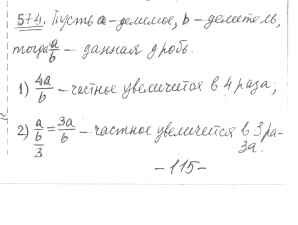 574. Пусть a - делимое, b - делитель,
тогда a/b - данная дробь.
1) 4a/b - частное увеличится в 4 раза,
2) a/(b/3) = 3a/b - частное увеличится в 3 ра-
за.
- 115 -